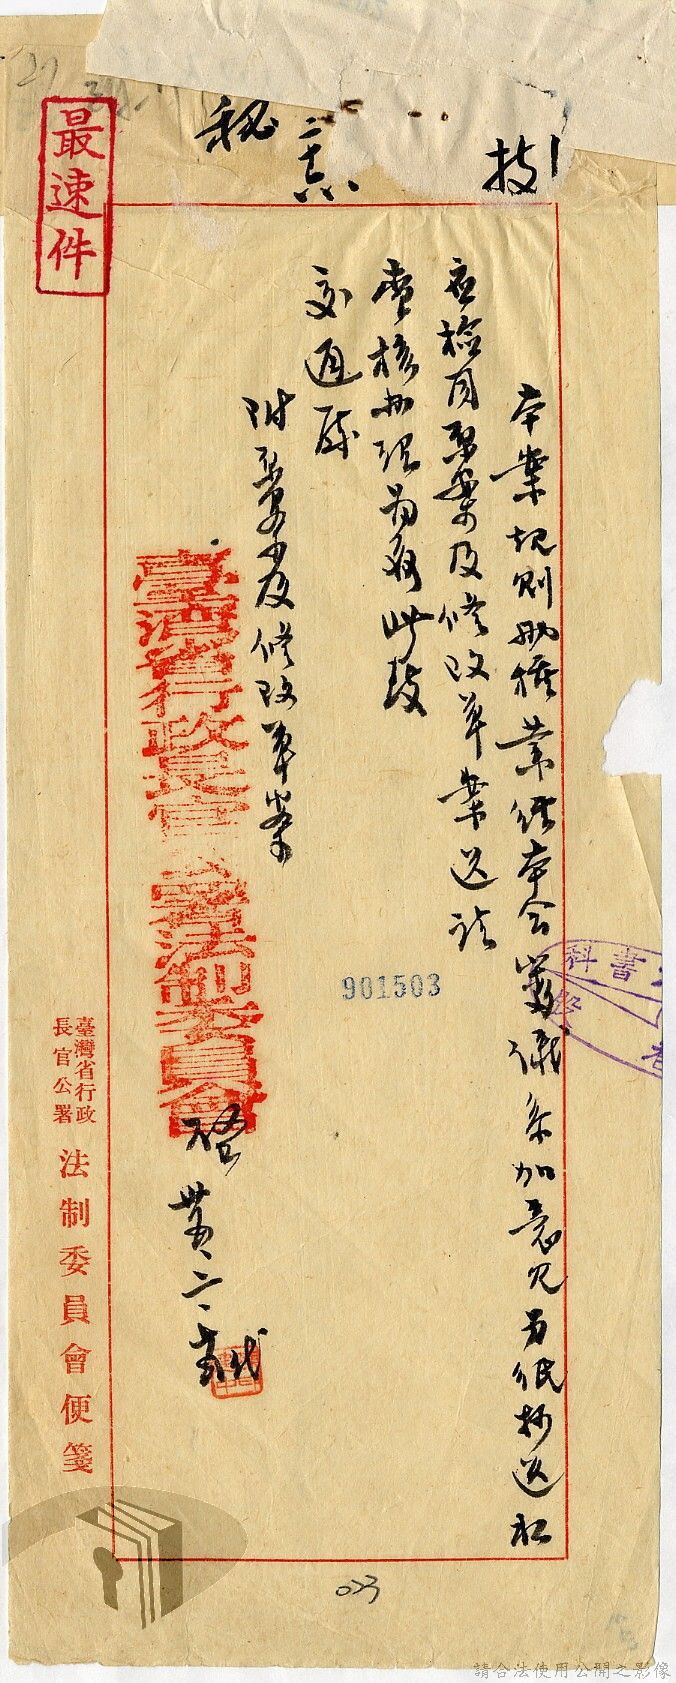 最速件
秘
技
本案規則一種業經本會審議參加意見另紙抄送相
應檢同原案及修改草案送請
查核辦理為荷此致
交通處
附原案及修改草案
臺灣省行政長官公署法制委員會
啓
901503
書科
臺灣省行政長官公署 法制委員會便箋
023
請合法使用公開之影像